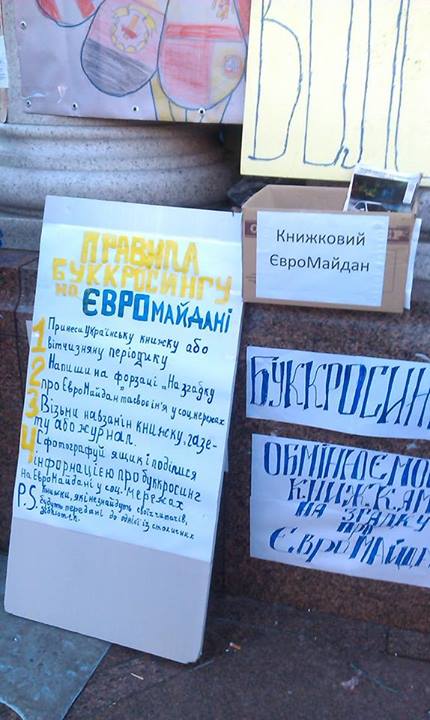 ПРАВИЛА
БУККРОСИНГУ
на ЄВРОМАЙДАНІ
1 Принеси українську книжку або
вітчизняну періодику
2 Напиши на форзаці „На згадку
про ЄвроМайдан" та своє ім'я у соц. мережах
3 Візьми навзаєм книжку, газе-
ту або журнал.
4 Сфотографуй ящик і поділися
інформацією про буккросинг
на ЄвроМайдані у соц. мережах
P.S. Книжки, які не знайдуть своїх читачів,
будуть передані до однієї із столичних
бібліотек.
Книжковий
ЄвроМайдан
БУККРОСИН
ОБМІНЮЄМО
КНИЖКАМ
НА ЗГАДКУ
ПРО
ЄвроМАЙДАН